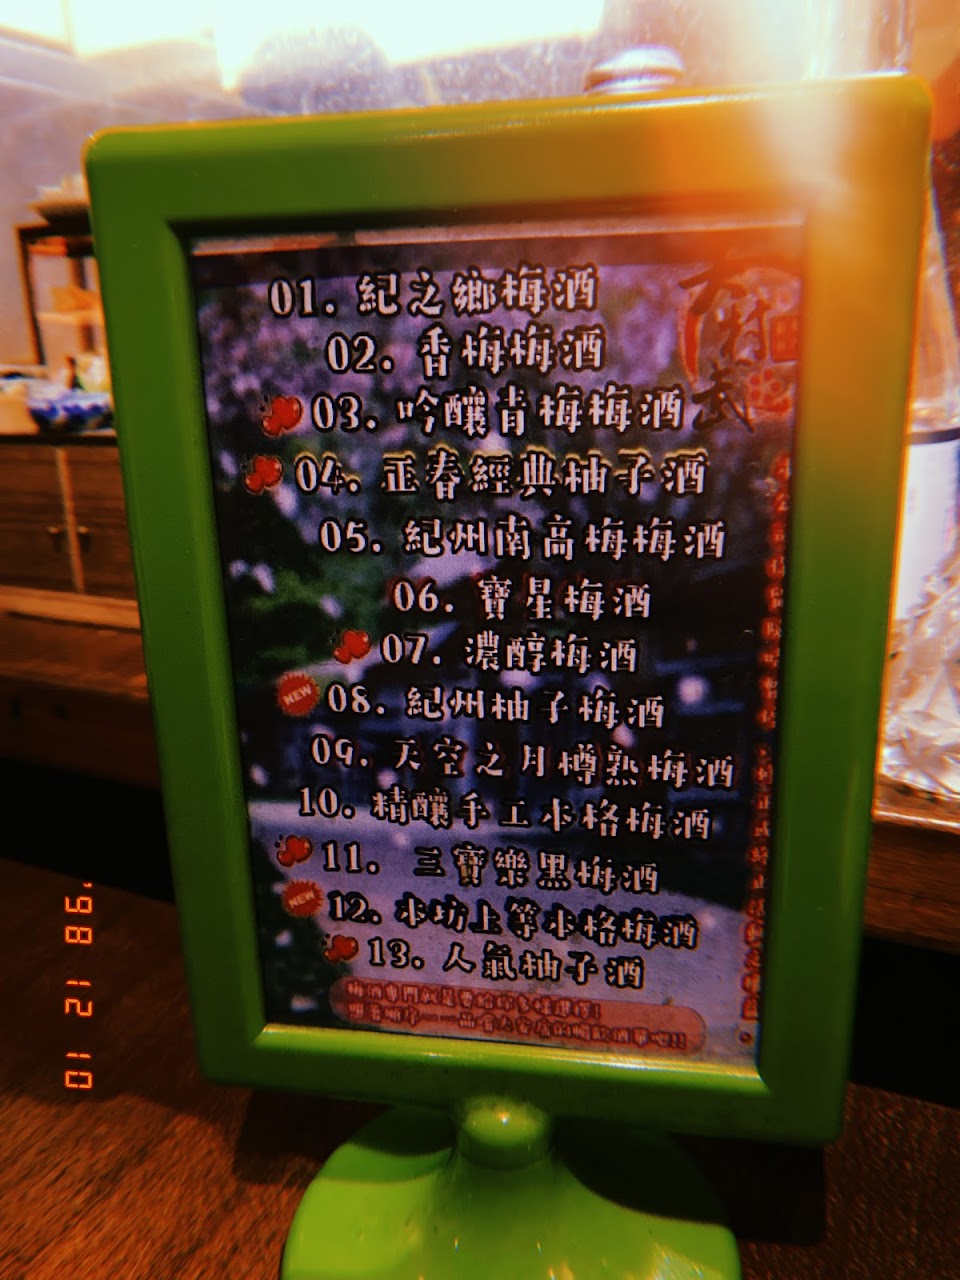 01. 紀之鄉梅酒
02. 香梅梅酒
03. 吟釀青梅梅酒
04. 正春經典柚子酒
05. 紀州南高梅梅酒
06. 寶星梅酒
07. 濃醇梅酒
NEW 08. 紀州柚子梅酒
09. 天空之月樽熟梅酒
10. 精釀手工本格梅酒
11. 三寶樂黑梅酒
NEW 12. 本坊上等本格梅酒
13. 人氣柚子酒
'98 12 10